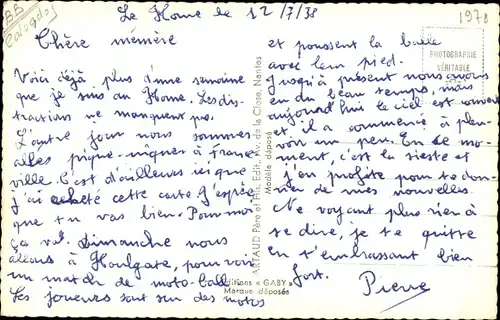 BB
Calvados
Le Home le 12/7/58
1978
Chère mémère
Voici déjà plus d'une semaine
que je suis au Home. Les dis-
tractions ne manquent pas.
L'autre jour nous sommes
allés pique-niquer à France-
ville. C'est d'ailleurs ici que
j'ai acheté cette carte. J'espère
que tu vas bien. Pour moi
ça va. Dimanche nous
allons à Houlgate, pour voir
un match de moto-ball.
Les joueurs sont sur des motos
ARTAUD Père et Fils, Edit., Av. de la Close, Nantes
Modèle déposé
Editions « GABY »
Marque déposée
PHOTOGRAPHIE
VÉRITABLE
et poussent la balle
avec leur pied.
Jusqu'à présent nous avons
eu du beau temps, mais
aujourd'hui le ciel est couvert
et il a commencé à pleu-
voir un peu. En ce mo-
ment, c'est la sieste et
j'en profite pour te don-
ner de mes nouvelles.
Ne voyant plus rien à
te dire, je te quitte
en t'embrassant bien
fort.
Pierre